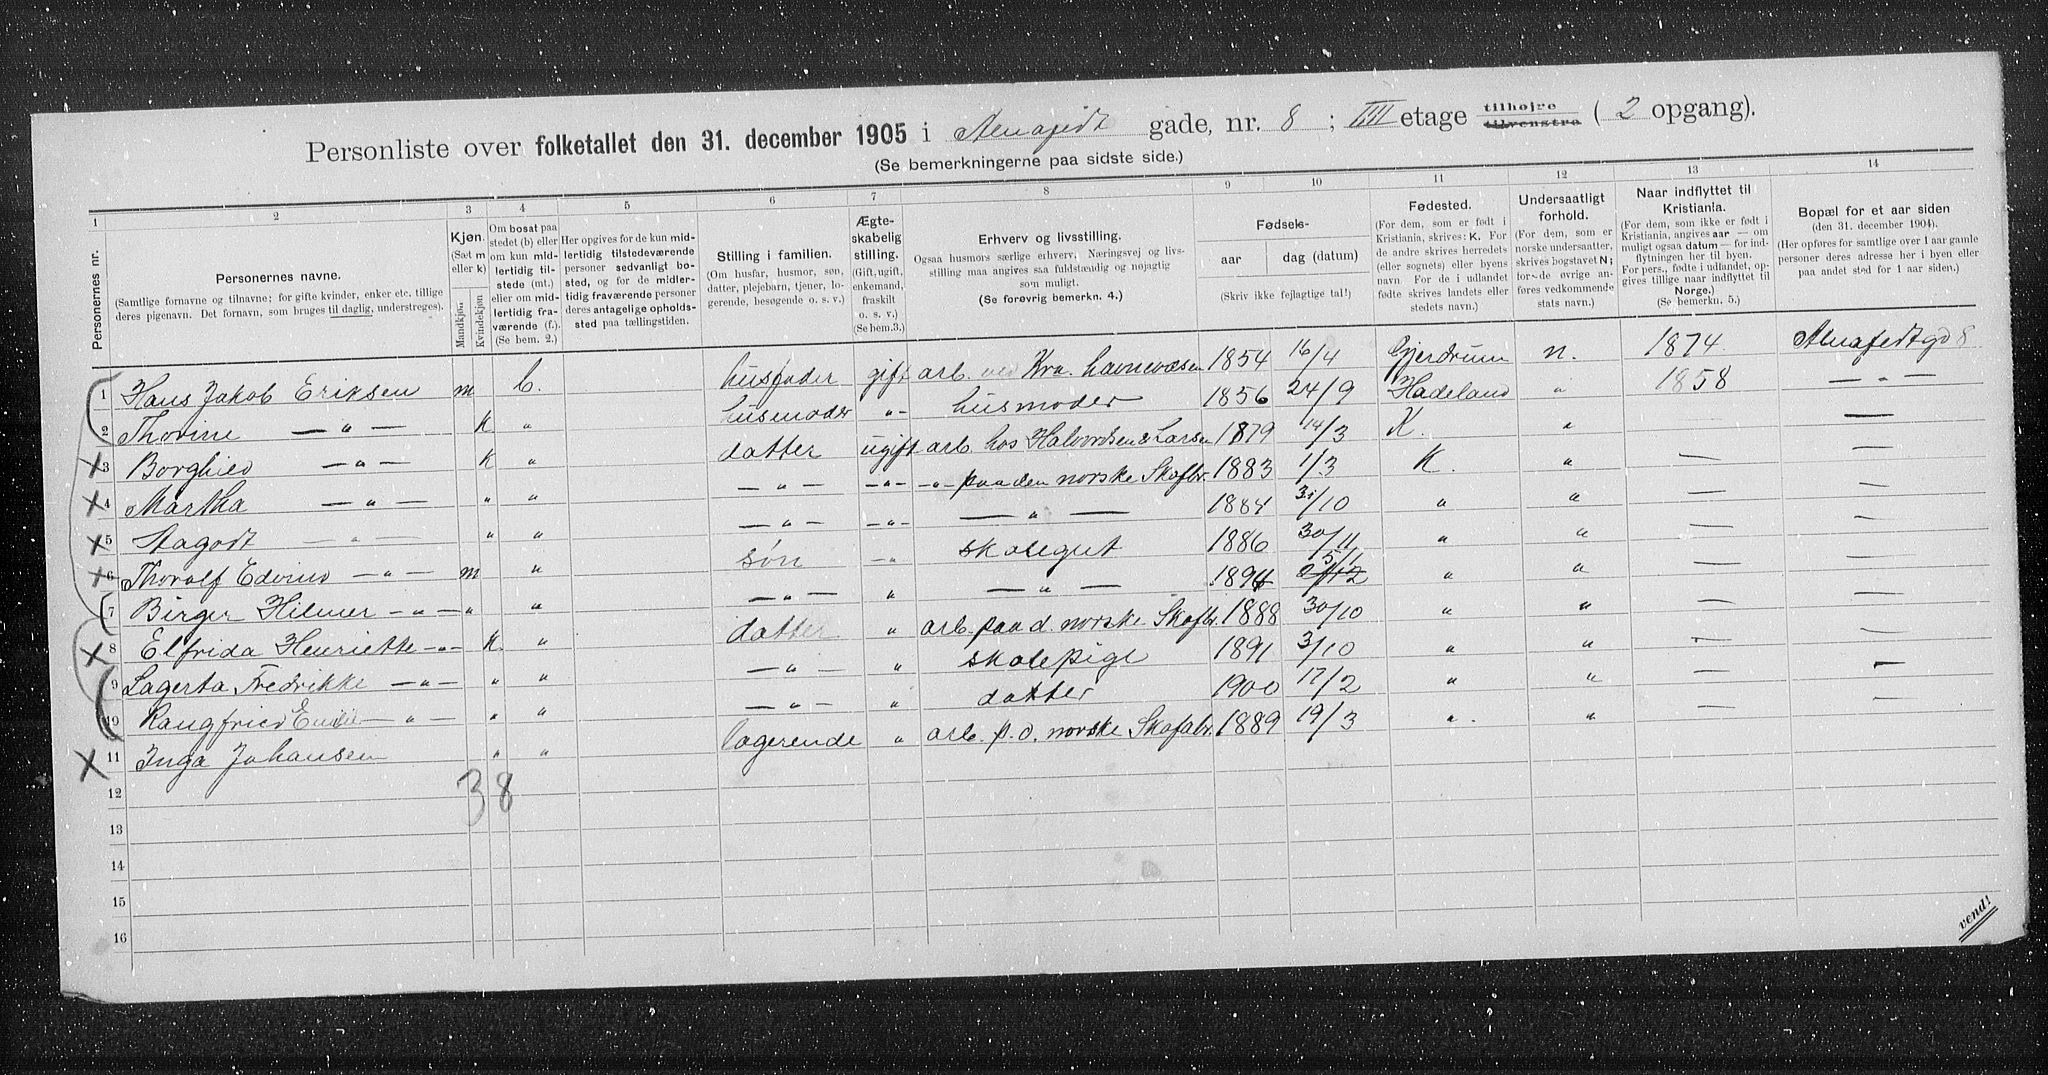 Personliste over folketallet den 31. december 1905 i Almafedt gade, nr. 8 ; III etage tilhøjre tilvenstre ( 2 opgang).
(Se bemerkningerne paa sidste side.)
1 2 3 4 5 6 7 8 9 10 11 12 13 14
Personernes nr.
Personernes navne.
(Samtlige fornavne og tilnavne; for gifte kvinder, enker etc. tillige
deres pigenavn. Det fornavn, som bruges til daglig, understreges).
Kjøn.
(Sæt m
eller k)
Mandkjøn
Kvindekjøn
Om bosat paa
stedet (b) eller
om kun mid-
lertidig til-
stede (mt.)
eller om mid-
lertidig fra-
værende (f.).
(Se bem. 2.)
Her opgives for de kun mid-
lertidig tilstedeværende
personer sedvanligt bo-
sted, og for de midler-
tidig fraværende personer
deres antagelige opholds-
sted paa tællingstiden.
Stilling i familien.
(Om husfar, husmor, søn,
datter, plejebarn, tjener, lo-
gerende, besøgende o. s. v.)
Ægte-
skabelig
stilling.
(Gift, ugift,
enkemand,
fraskilt
o. s. v.)
(Se bem.3.)
Erhverv og livsstilling.
Ogsaa husmors særlige erhverv. Næringsvej og livs-
stilling maa angives saa fuldstændig og nøjagtig
som muligt.
(Se forøvrig bemerkn. 4.)
Fødsels-
aar dag (datum)
(Skriv ikke fejlagtige tal!)
Fødested.
(For dem, som er født i
Kristiania, skrives: K. For
de andre skrives herredets
(eller sognets) eller byens
navn. For de i udlandet
fødte skrives landets eller
stedets navn.)
Undersaatligt
forhold.
(For dem, som er
norske undersaatter,
skrives bogstavet N;
for de øvrige an-
føres vedkommende
stats navn.)
Naar indflyttet til
Kristiania.
(For dem, som ikke er født i
Kristiania, angives aar — om
muligt ogsaa datum — for ind-
flytningen her til byen.
For pers., fødte i udlandet, op-
gives tillige naar indflyttet til
Norge.)
(Se bemerkn. 5.)
Bopæl for et aar siden
(den 31. december 1904).
(Her opføres for samtlige over 1 aar gamle
personer deres adresse her i byen eller
paa andet sted for 1 aar siden.)
1 Hans Jakob Eriksen m b. husfader gift arb. ved Kra. havnevæsen 1854 16/4 Gjerdrum n. 1874 Almafedtgd 8
2 Thorine — " — k " husmoder " husmoder 1856 24/9 Hadeland " 1858 — " —
3 — " — k " datter ugift arb. hos Halvordsen & Larsen 1879 14/3 K. " —
4 Martha — " — " " — " — — " — — " — paa den norske Skofbr. 1883 1/3 K. " — —
5 — " — " " — " — — " — — " — 1884 31/10 " " — —
6 Thorolf — " — m " søn — " — skolegut 1886 30/11 " " — —
7 Birger Hilmer — " — " " — " — " — " — 1894 5/11 " " — —
8 Elfrida Henriette — " — K. " datter " arb. paa d. norske Skofbr. 1888 30/10 " " — —
9 Lagerta Fredrikke — " — " " — " — " skolepige 1891 3/10 " " — —
10 — " — " " — " — " datter 1900 17/2 " " — —
11 Inga Johansen " " logerende " arb. p. d. norske Skofabr. 1889 19/3 " " — —
12
38
13
14
15
16
vend!